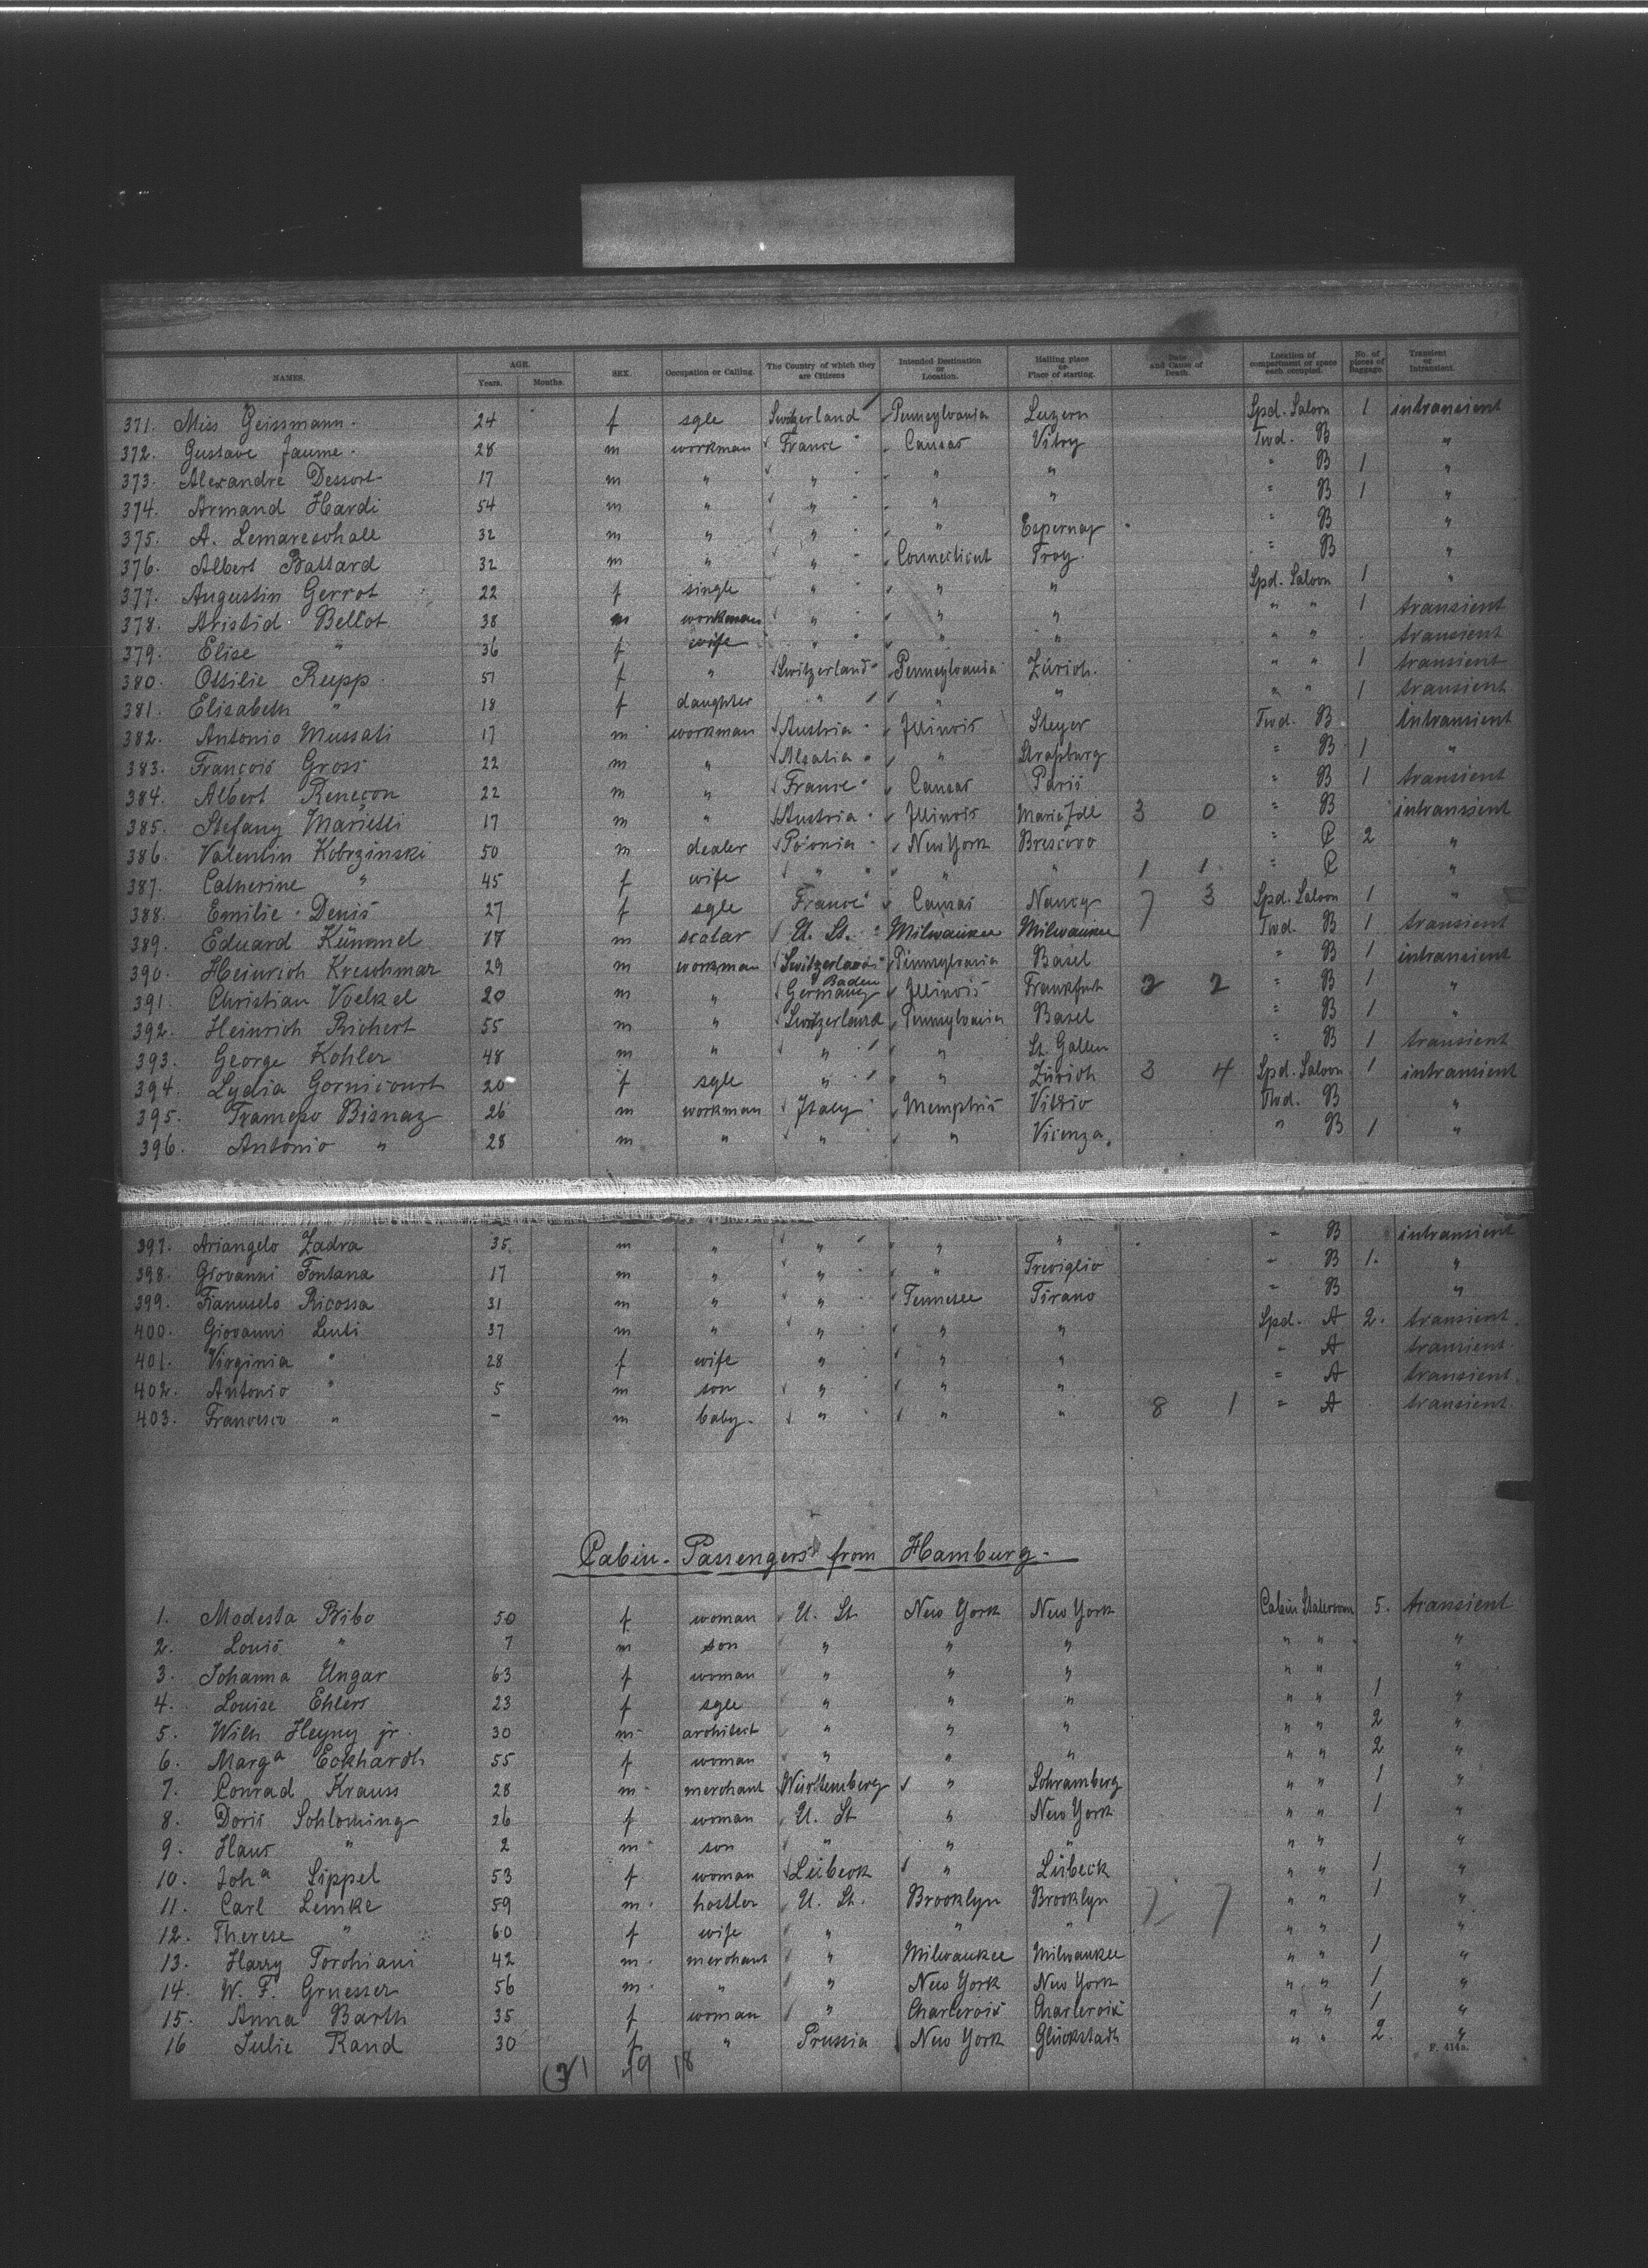 NAMES. AGE. Years. Months. SEX. Occupation or Calling. The Country of which they are Citizens Intended Destination or Location. Hailing place or Place of starting. Date and Cause of Death. Location of compartment or space each occupied. No. of pieces of baggage. Transient or Intransient.
371. Miss Geissmann. 24 f sgle Switzerland Pennsylvania Luzern Spd. Saloon 1 intransient
372. Gustave Jaume. 28 m workman France Cansas Vitry Twd. B "
373. Alexandre Dessort 17 m " " " " " B 1 "
374. Armand Hardi 54 m " " " " " B 1 "
375. A. Lemareschall 32 m " " " Espernay " B "
376. Albert Battard 32 m " " Connecticut Troy. " B "
377. Augustin Gerrot 22 f single " " " Spd. Saloon 1 "
378. Aristid Bellot 38 m workman " " " " " 1 transient
379. Elise " 36 f wife " " " " " transient
380. Ottilie Rupp 51 f " Switzerland Pennsylvania Zürich. " " 1 transient
381. Elisabeth " 18 f daughter " " " " " 1 transient
382. Antonio Mussati 17 m workman Austria Illinois Steyer Twd. B intransient
383. François Gross 22 m " Alsatia " Straßburg " B 1 "
384. Albert Reneçon 22 m " France Cansas Paris " B 1 transient
385. Stefany Marietti 17 m " Austria Illinois MariaZell 3 0 " B intransient
386. Valentin Kobrzinski 50 m dealer Polonia New York Brescovo " C 2 "
387. Catherine " 45 f wife " " " 1 1 " C "
388. Emilie Denis 27 f sgle France Cansas Nancy 7 3 Spd. Saloon 1 "
389. Eduard Kümmel 17 m scolar U. St. Milwaukee Milwaukee Twd. B 1 transient
390. Heinrich Kreschmar 29 m workman Switzerland Pennsylvania Basel " B 1 intransient
391. Christian Voelkel 20 m " Germany Baden Illinois Frankfurt 2 2 " B 1 "
392. Heinrich Richert 55 m " Switzerland Pennsylvania Basel " B 1 "
393. George Kohler 48 m " " " St. Gallen " B 1 transient
394. Lydia Gornicourt 20 f sgle " " Zürich 3 4 Spd. Saloon 1 intransient
395. Bisnaz 26 m workman Italy Memphis Twd. B "
396. Antonio " 28 m " " " Vicenza. " B 1 "
397. Ariangelo Zadra 35 m " " " " " B intransient
398. Giovanni Fontana 17 m " " " Treviglio " B 1. "
399. Ricossa 31 m " " Tennesee Tirano " B "
400. Giovanni Lenti 37 m " " " " Spd. A 2. transient
401. Virginia " 28 f wife " " " " A transient
402. Antonio " 5 m son " " " " A transient
403. Francesco " - m baby. " " " 8 1 " A transient
Cabin-Passengers from Hamburg.
1. Modesta Bibo 50 f woman U. St New York New York Cabin Stateroom 5. transient
2. Louis " 7 m son " " " " " "
3. Johanna Ungar 63 f woman " " " " " "
4. Louise Ehlers 23 f sgle " " " " " 1 "
5. Wilh Heyny jr. 30 m architect " " " " " 2 "
6. Marga Eckhardh 55 f woman " " " " " 2 "
7. Conrad Krauss 28 m merchant Württemberg " Schramberg " " 1 "
8. Doris Schloming 26 f woman U. St " New York " " 1 "
9. Hans " 2 m son " " " " " "
10. Joha Sippel 53 f woman Lübeck " Lübeck " " 1 "
11. Carl Lemke 59 m hostler U. St. Brooklyn Brooklyn 7 7 " " 1 "
12. Therese " 60 f wife " " " " " "
13. Harry Torchiani 42 m merchant " Milwaukee Milwaukee " " 1 "
14. W. F. Gruesser 56 m " " New York New York " " 1 "
15. Anna Barth 35 f woman " Charleroix Charleroix " " 1 "
16 Julie Rand 30 f " Prussia New York Glückstadt " " 2 "
F. 414a.
19 18